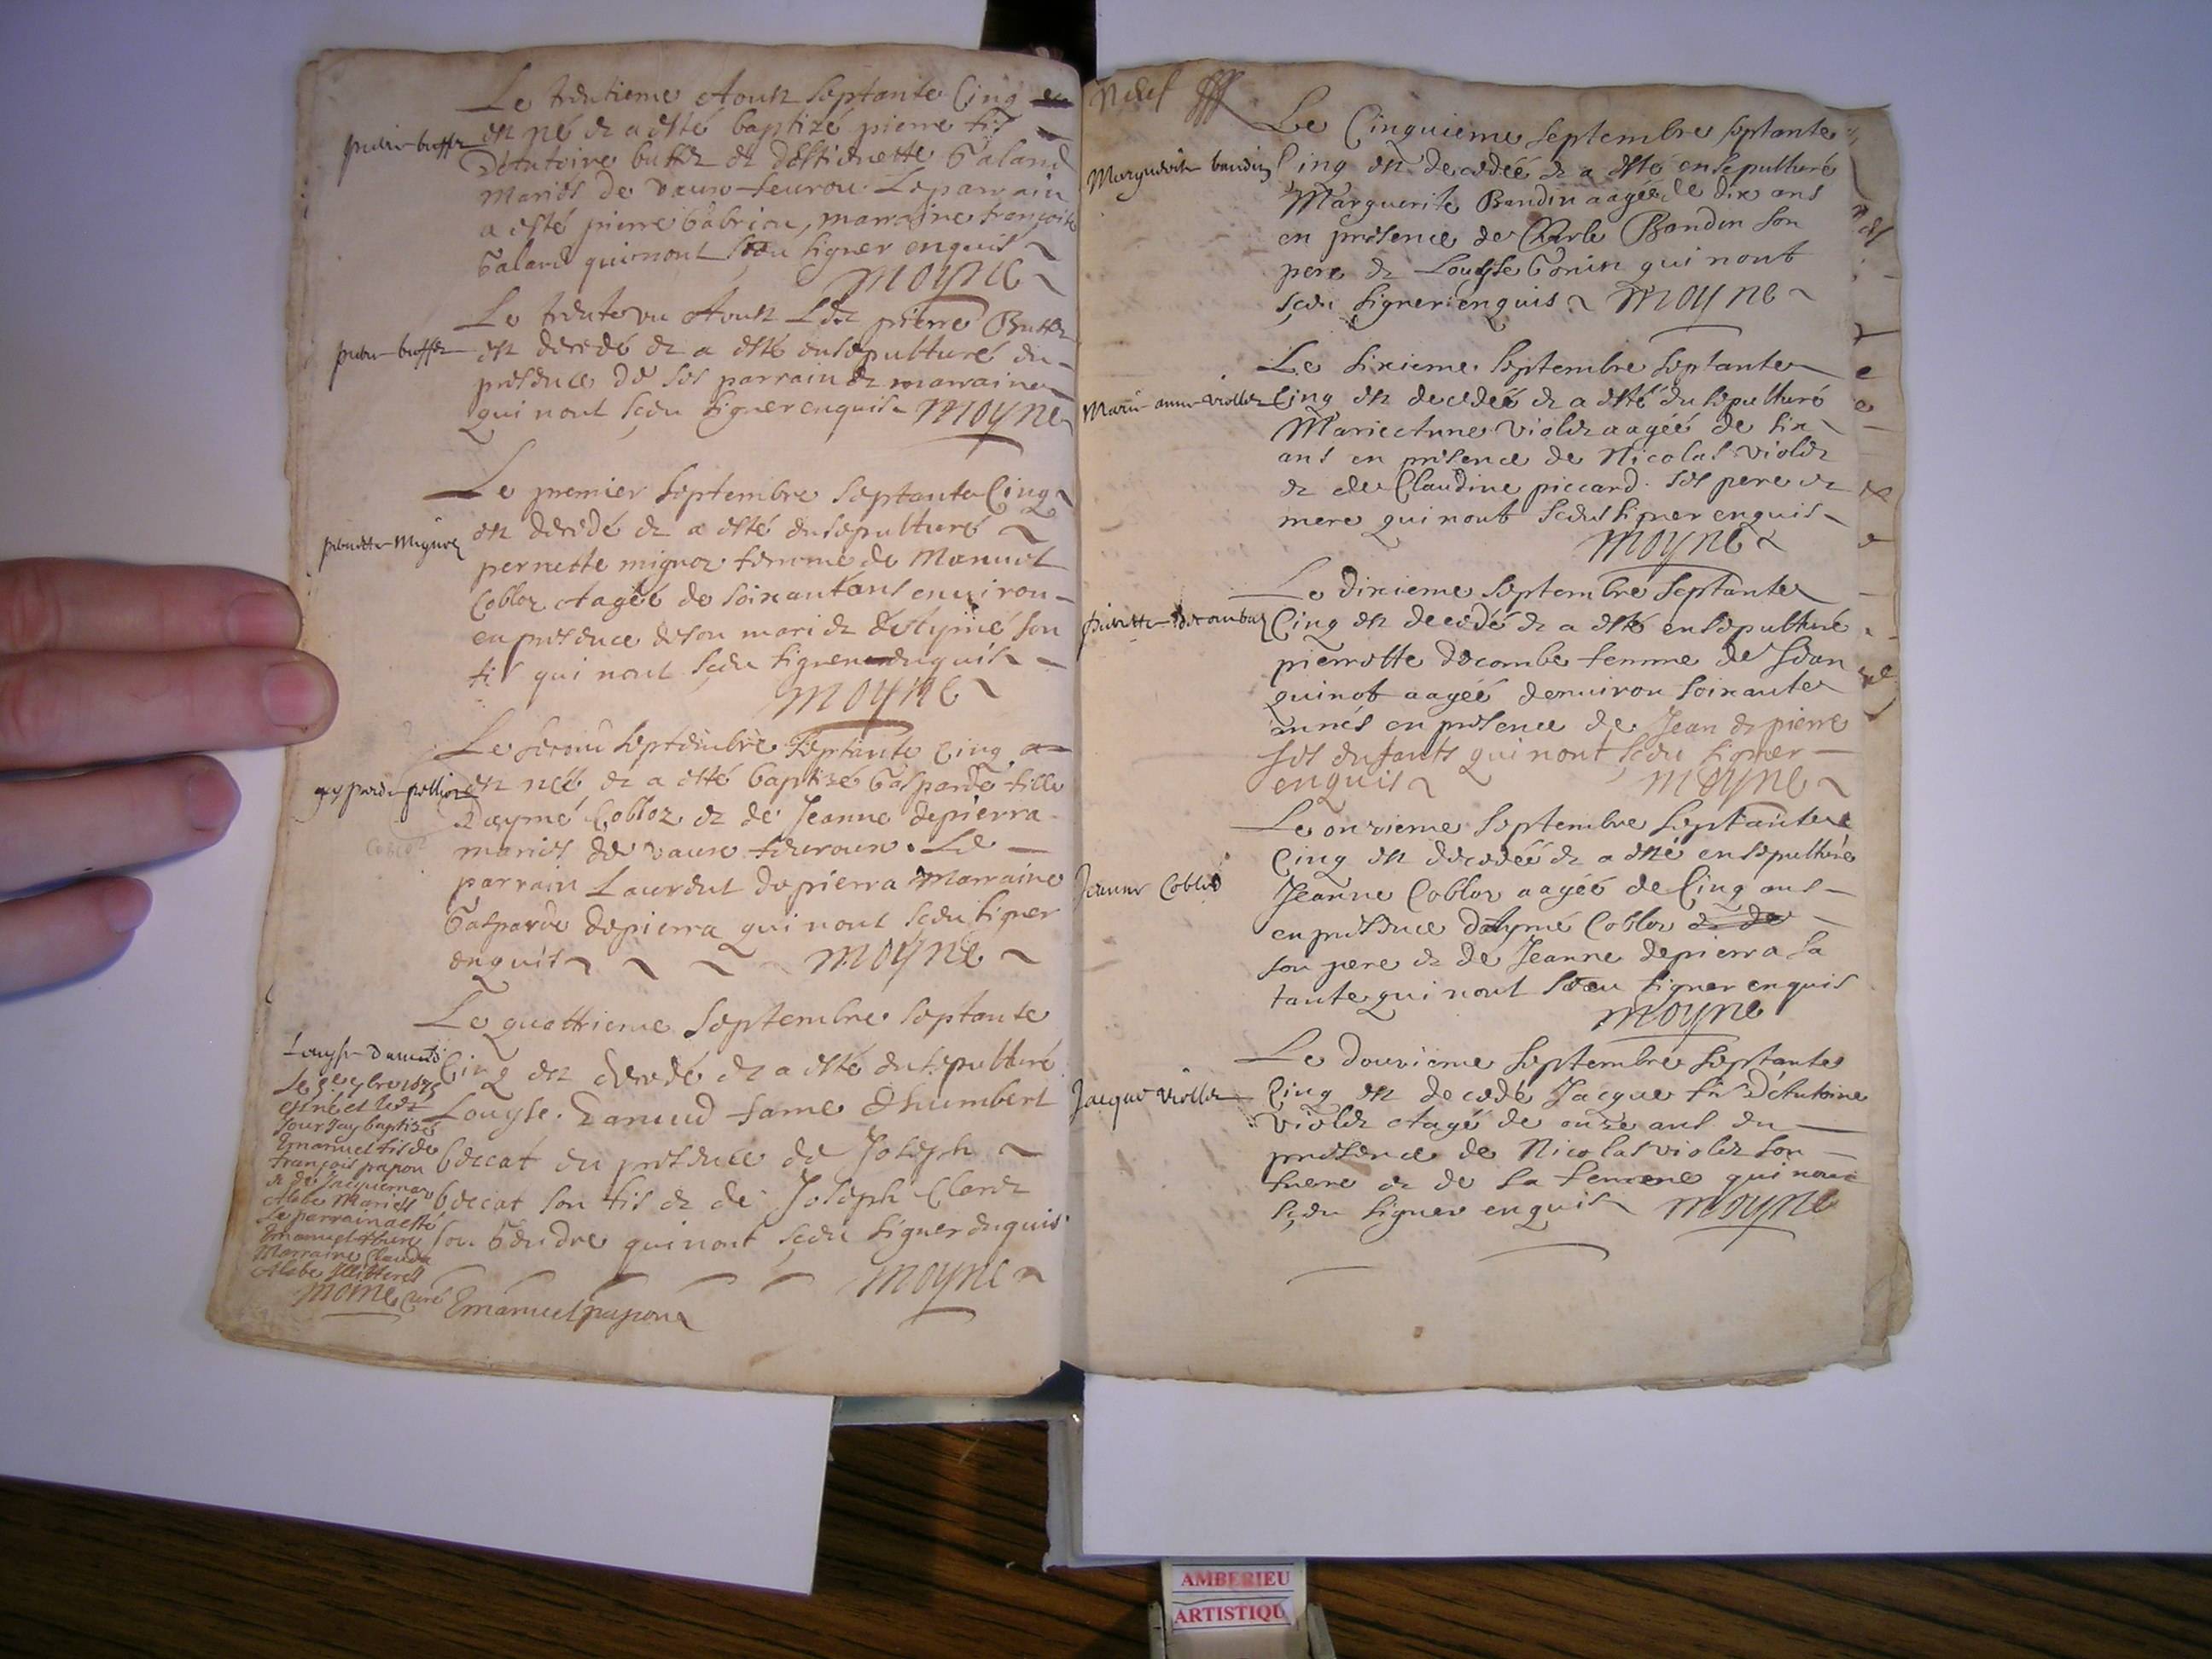 Le trentieme Aoust septante Cinq
est né et a esté baptizé pierre fils
D'Antoine buffet et d'Estienette Galand
mariés de vaux fevrou. Le parrain
a esté pierre Gabriou, marraine françoise
Galand qui nont sceu signer enquis
MOYNE
Le trente un Aoust Led pierre Buffet
est decedé et a esté ensepulturé en
presence de ses parrain et marraine
qui nont sceu signer enquis MOYNE
Le premier septembre septante Cinq
est decedé et a esté ensepulturé
pernette mignoz femme de Manuel
Cobloz Aagée de soixante ans environ
en presence de son mari et d'Aymé son
fils qui nont sceu signer enquis
MOYNE
Le second septembre septante cinq
est née et a esté baptizé Gasparde fille
D'aymé Cobloz et de Jeanne depierra
mariés de vaux fevroux. Le
parrain Laurent depierra Marraine
Gasparde depierra qui nont sceu signer
enquis MOYNE
Le quattrieme septembre septante
Cinq est decedé et a esté ensepulturé
Louyse Danend fame d'humbert
beccat en presence de Joseph
beccat son fils et de Joseph Clerc
son Gendre qui nont sceu signer enquis
MOYNE
pierre buffet
pierre buffet
pernette Mignoz
gasparde
Louyse
Le 9e 7bre 1675
est né et led
jour jay baptizé
Emanuel fils de
françois papon
Le parrain a esté
Marraine Clauda
MOINE Curé Emanuel papon
Le Cinquieme septembre septante
Cinq est decedée et a esté ensepulturé
Marguerite Baudin aagée de dix ans
en presence de Charle Baudin son
pere et Louyse Gonin qui nont
sceu signer enquis MOYNE
Le sixieme septembre septante
Cinq est decedée et a esté ensepulturé
Marie Anne violet aagée de six
ans en presence de Nicolas violet
et de Claudine piccard ses pere et
mere qui nont sceu signer enquis
MOYNE
Le dixieme septembre septante
Cinq est decedé et a esté ensepulturé
pierrette decombe femme de Jean
quinot aagée denviron soixante
années en presence de Jean et pierre
ses enfants qui nont sceu signer
enquis MOYNE
Le onzieme septembre septante
Cinq est decedée et a esté ensepulturé
Jeanne Cobloz aagée de Cinq ans
en presence d'Aymé Cobloz et de
son pere et de Jeanne depierra sa
tante qui nont sceu signer enquis
MOYNE
Le douzieme septembre septante
Cinq est decedé Jacque fils D'Antoine
violet Aagé de onze ans en
presence de Nicolas violet son
frere et de sa femme qui nont
sceu signer enquis MOYNE
Marguerite baudin
Marie anne viollet
pierrette decombaz
Jeanne Cobloz
Jacque viollet
AMBERIEU
ARTISTIQU